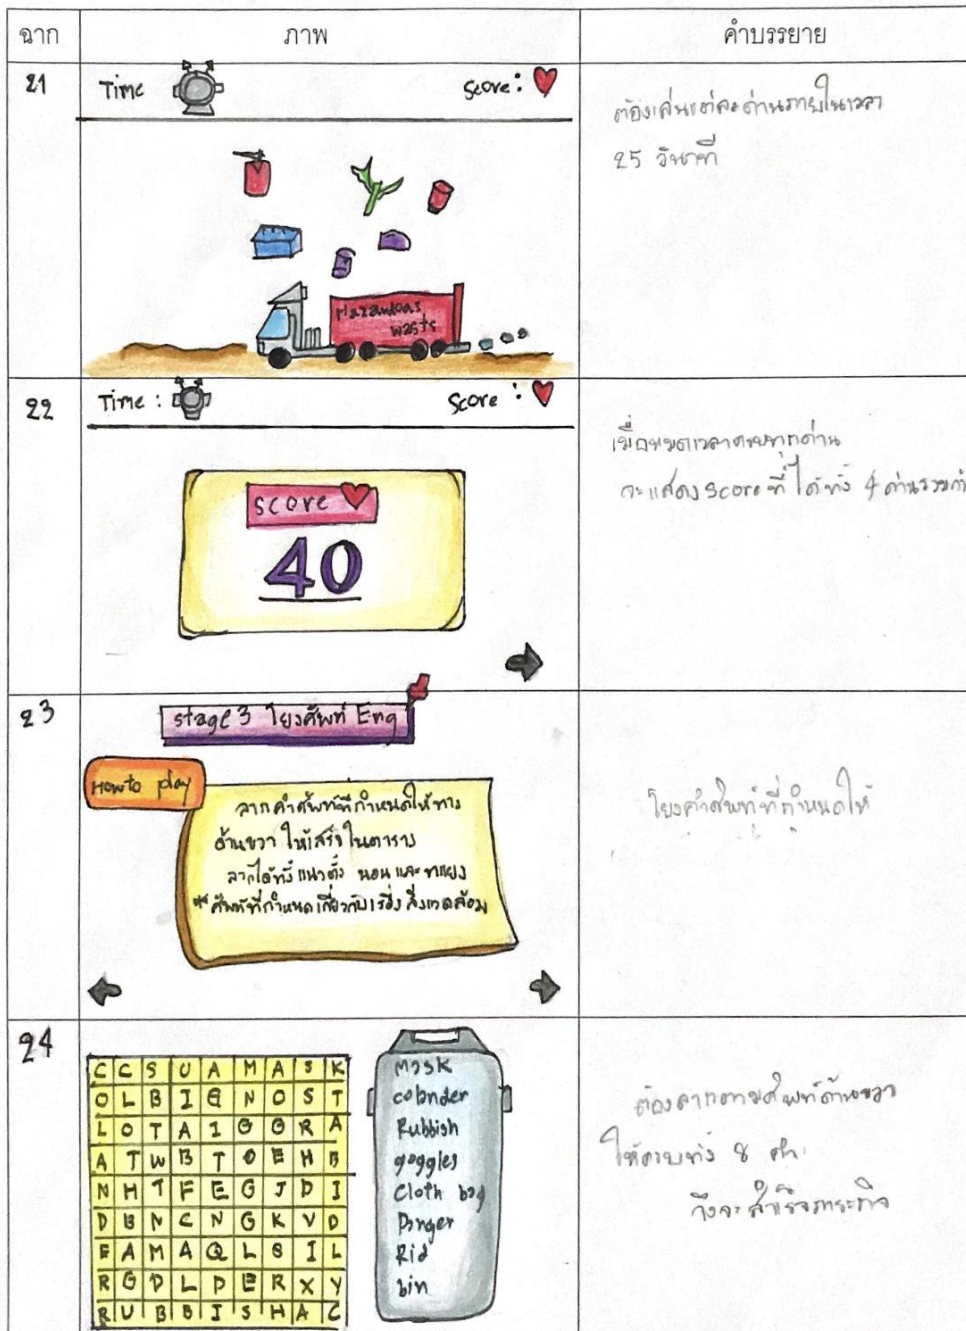 ฉาก ภาพ คำบรรยาย
21
Time Score:
Hazandoas
wasts
ต้องเล่นแต่ละด่านภายในเวลา
25 วินาที
22
Time : Score :
score
40
เมื่อหมดเวลาครบทุกด่าน
จะแสดง score ที่ได้ทั้ง 4 ด่านรวมกัน
23
stage 3 โยงศัพท์ Eng
How to play
ลากคำศัพท์ที่กำหนดให้ทาง
ด้านขวา ให้เสร็จในตาราง
ลากได้ทั้งแนวตั้ง นอน และ ทแยง
** ศัพท์ที่กำหนดเกี่ยวกับเรื่องสิ่งแวดล้อม
โยงคำศัพท์ที่กำหนดให้
24
C C S U A M A S K
O L B I Q N O S T
L O T A I G O R A
A T W B T O E H B
N H T F E G J D I
D B N C N G K V D
E A M A Q L S I L
R G D L D E R X Y
R U B B I S H A C
mask
colander
Rubbish
goggles
Cloth bag
Danger
Rid
bin
ต้องลากตามศัพท์ด้านขวา
ให้ครบทั้ง 8 คำ
จึงจะสำเร็จภารกิจ